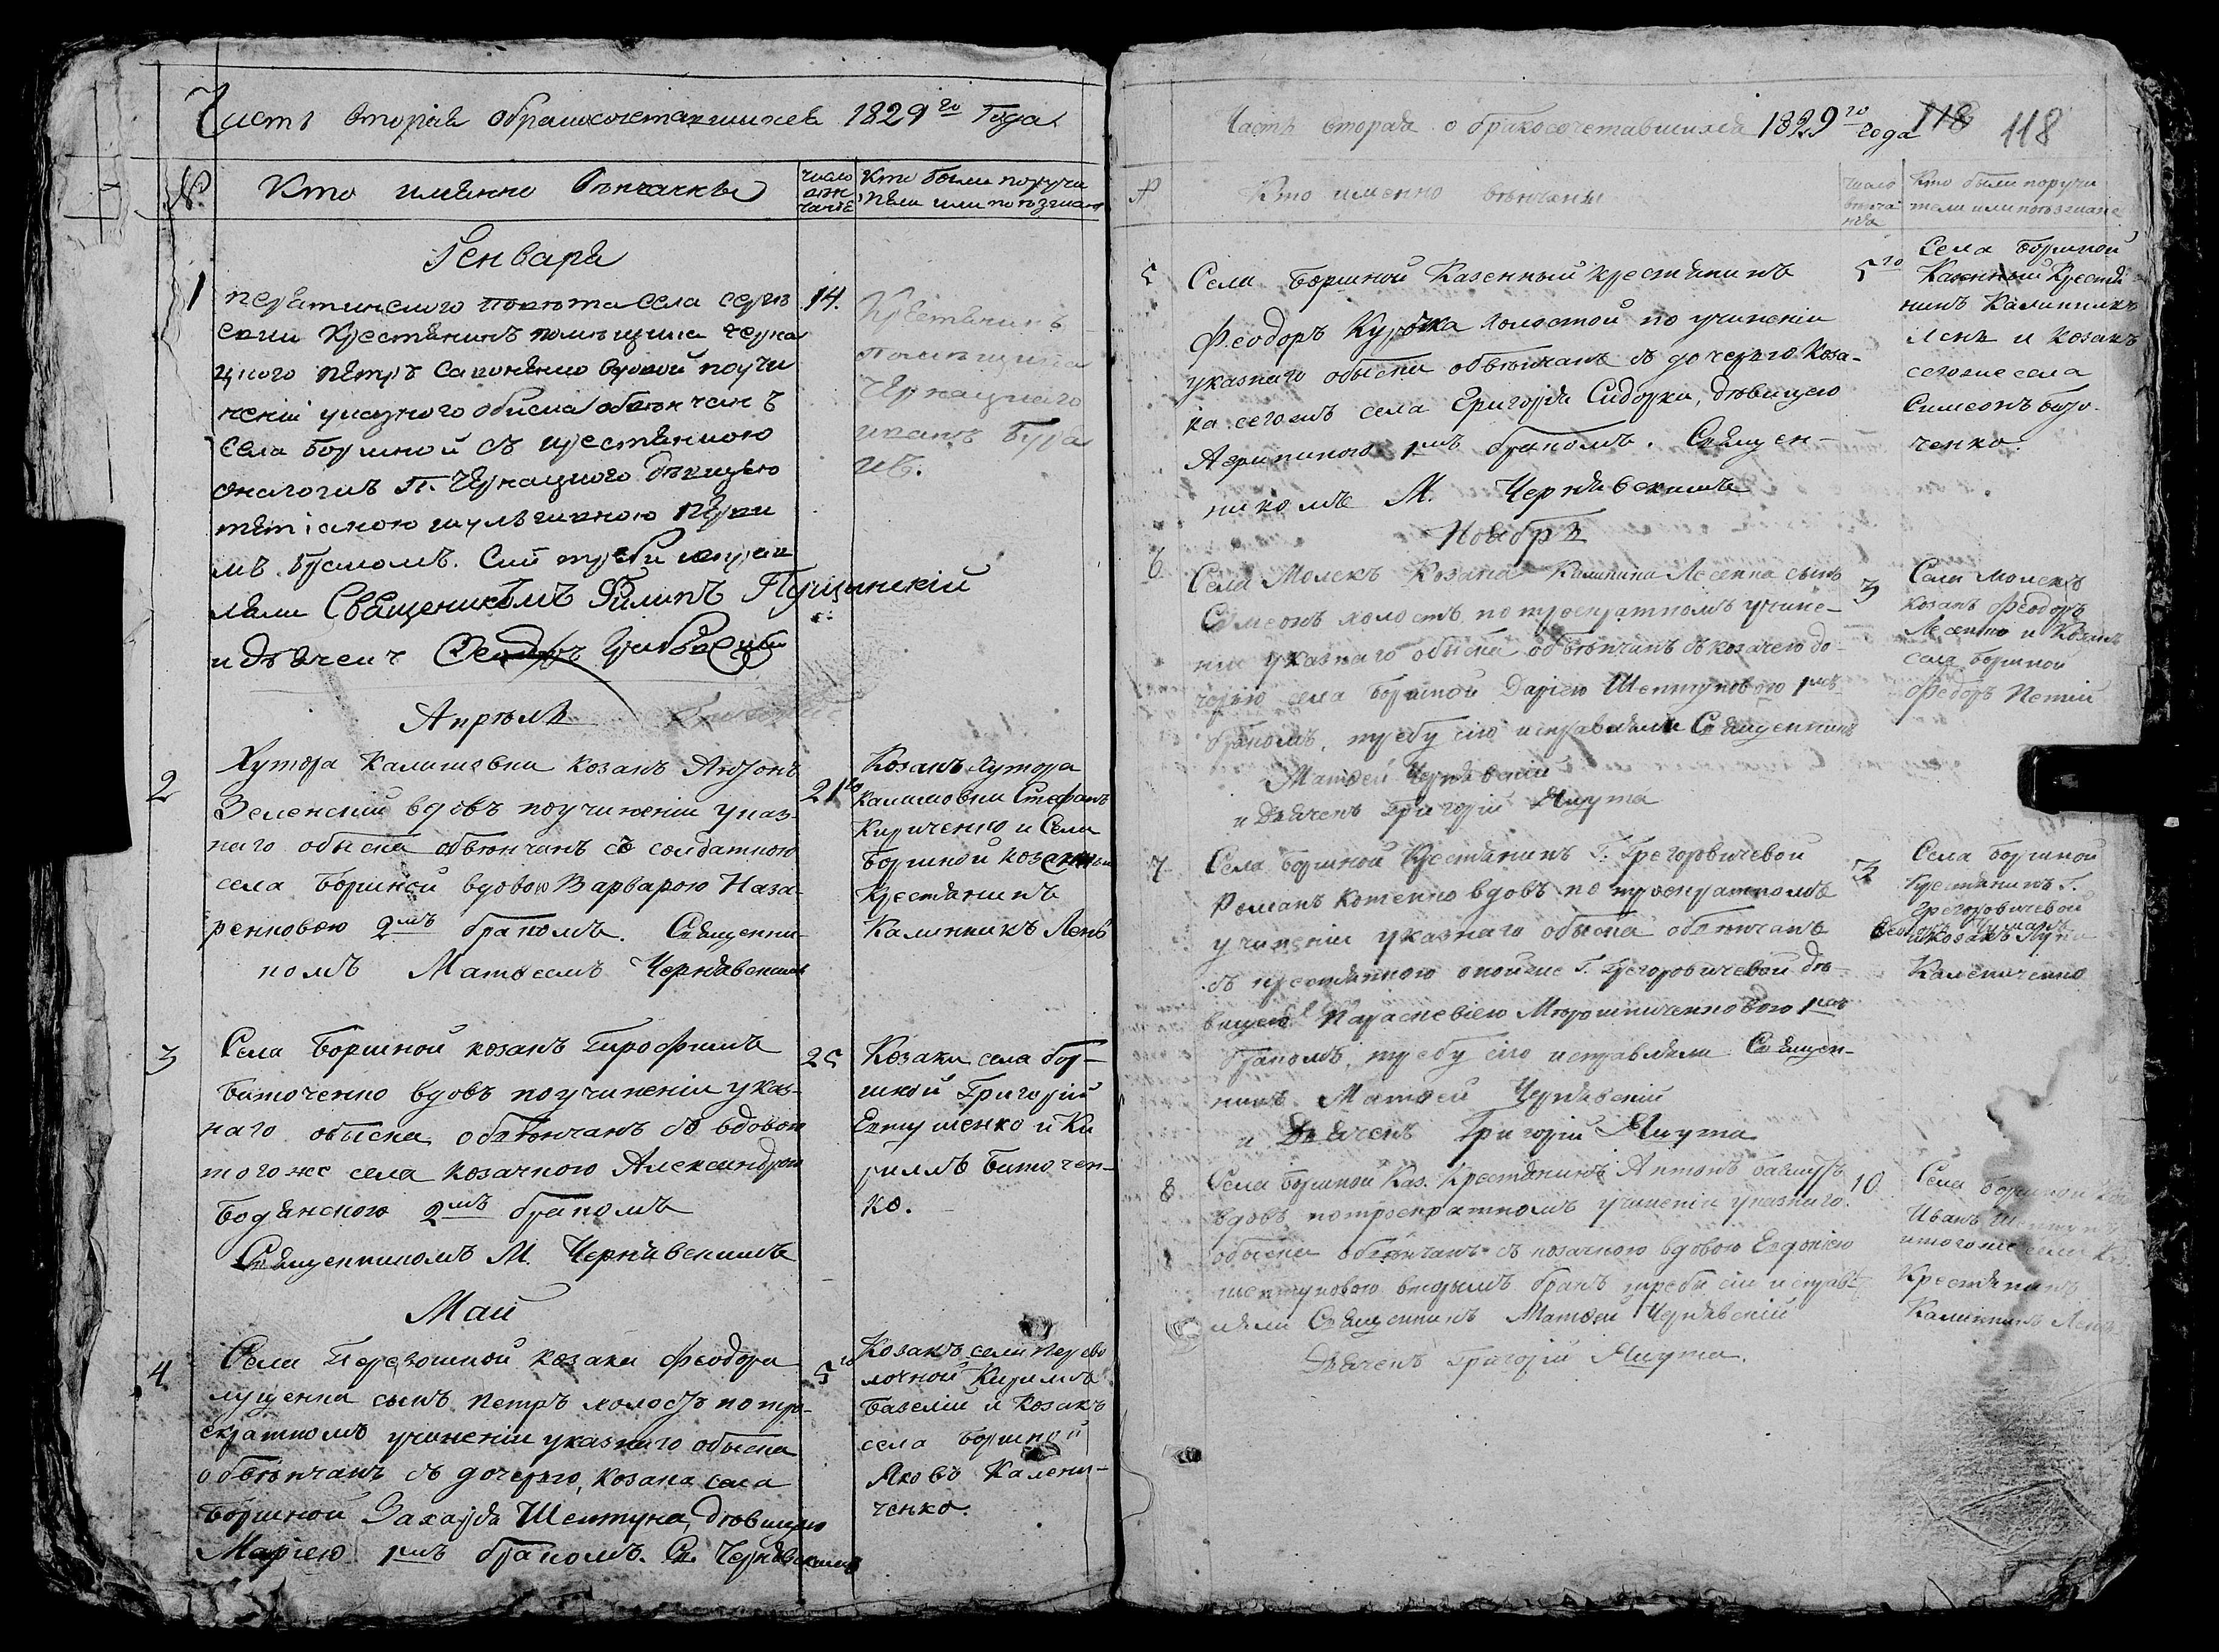 Часть вторая о бракосочетавшихся 1829го Года
№ Кто имянно венчанны
число вен чанія
Кто были поручи тели или поезжан
Генваря
1
Пирятинского Повета села
Крестянинъ помещика Черна
цкого Петръ по учи
неніи указного обиска обвенчанъ
села Боршной съ крестянкою
оналогомъ П. Чернацкого девицею
перви
мъ бракомъ. Сий требы исправ
ляли Священикомъ Филипъ
и дьячекъ
14.
Крестянинъ
помещика
Чернацкаго
иванъ
Апреля
2
Хутора Калиновки козакъ Антонъ
Зеленский вдовъ по учиненіи указ-
наго обыска обвенчанъ съ солдаткою
села Боршной вдовою Варварою Наза-
ренковою 2мъ бракомъ. Священни-
комъ Матвеемъ Чернявскимъ
21го
Козакъ Хутора
Калиновки Стефанъ
Кириченко и Села
Боршной казенной
Крестянинъ
Калинникъ Ленъ
3
Села Боршной козакъ Трофимъ
Биточенко вдовъ по учиненіи указ-
наго обыска обвенчанъ съ вдовою
того же села козачкою Александрою
Бодянскою 2мъ бракомъ
Священникомъ М. Чернявскимъ
25
Козаки села Бор-
шной Григорій
Евтушенко и Ки
риллъ Биточен-
ко.
Май
4
Села Переволошной козака Феодора
Лущенка сынъ Петръ холостъ по тро-
екратномъ учиненіи указнаго обыска
обвенчанъ съ дочерью, козака села
Боршной Захарія Шептуна, девицею
Маріею 1мъ бракомъ. Св. Чернявскимъ
5го
Козакъ села Перево
лочной Кириллъ
Базелій и Козакъ
села Боршной
Яковъ Калени-
ченко.
Часть вторая о бракосочетавшихся 1829го года
118 118
№ Кто именно венчаны
число венча нія
Кто были поручи тели или поезжане
5
Села Боршной Казенный крестянинъ
Феодоръ холостой по учиненіи
указнаго обыска обвенчанъ съ дочерью Коза-
ка сегожъ села Григорія Сидорки, девицею
Агрипиною 1мъ бракомъ. Священ-
никомъ М. Чернявскимъ
5го
Села Боршной
Казенный Крестя-
нинъ Калинникъ
Ленъ и Козакъ
сегоже села
Симеонъ
ченко.
Ноябрь
6
Села Молекъ Козака Калинника Лесенка сынъ
Симеонъ холостъ по троекратномъ учине-
ніи указнаго обыска обвенчанъ съ козачею до-
черью села Боршной Даріею Шептуновою 1мъ
бракомъ, требу сію исправляли Священникъ
Матвей Чернявскій
и Дьячекъ Григорій Якута
3
Села Молекъ
козакъ Феодоръ
Лесенко и Козакъ
села Боршной
Федоръ
7
Села Боршной Крестянинъ Г. Грегоровичевой
Романъ Котенко вдовъ по троекратномъ
учиненіи указнаго обыска обвенчанъ
съ крестянкою оной же Г. Грегоровичевой де-
вицею Параскевіею Мирошниченковою 1мъ
бракомъ, требу сію исправляли Священ-
никъ Матвей Чернявскій
и Дьячекъ Григорій Якута
3
Села Боршной
Крестянинъ Г.
Грегоровичевой
и козакъ Лука
Калениченко
8
Села Боршной Каз. Крестянинъ Антонъ
вдовъ по троекратномъ учиненіи указнаго
обыска обвенчанъ съ козачкою вдовою Евдокіею
Шептуновою вторымъ бракъ требы сіи исправ-
ляли Священникъ Матвей Чернявскій
Дьячекъ Григорій Якута.
10
Села Боршной
Иванъ Шептунъ
и тогоже села Каз.
Крестянинъ
Калинникъ Ленъ